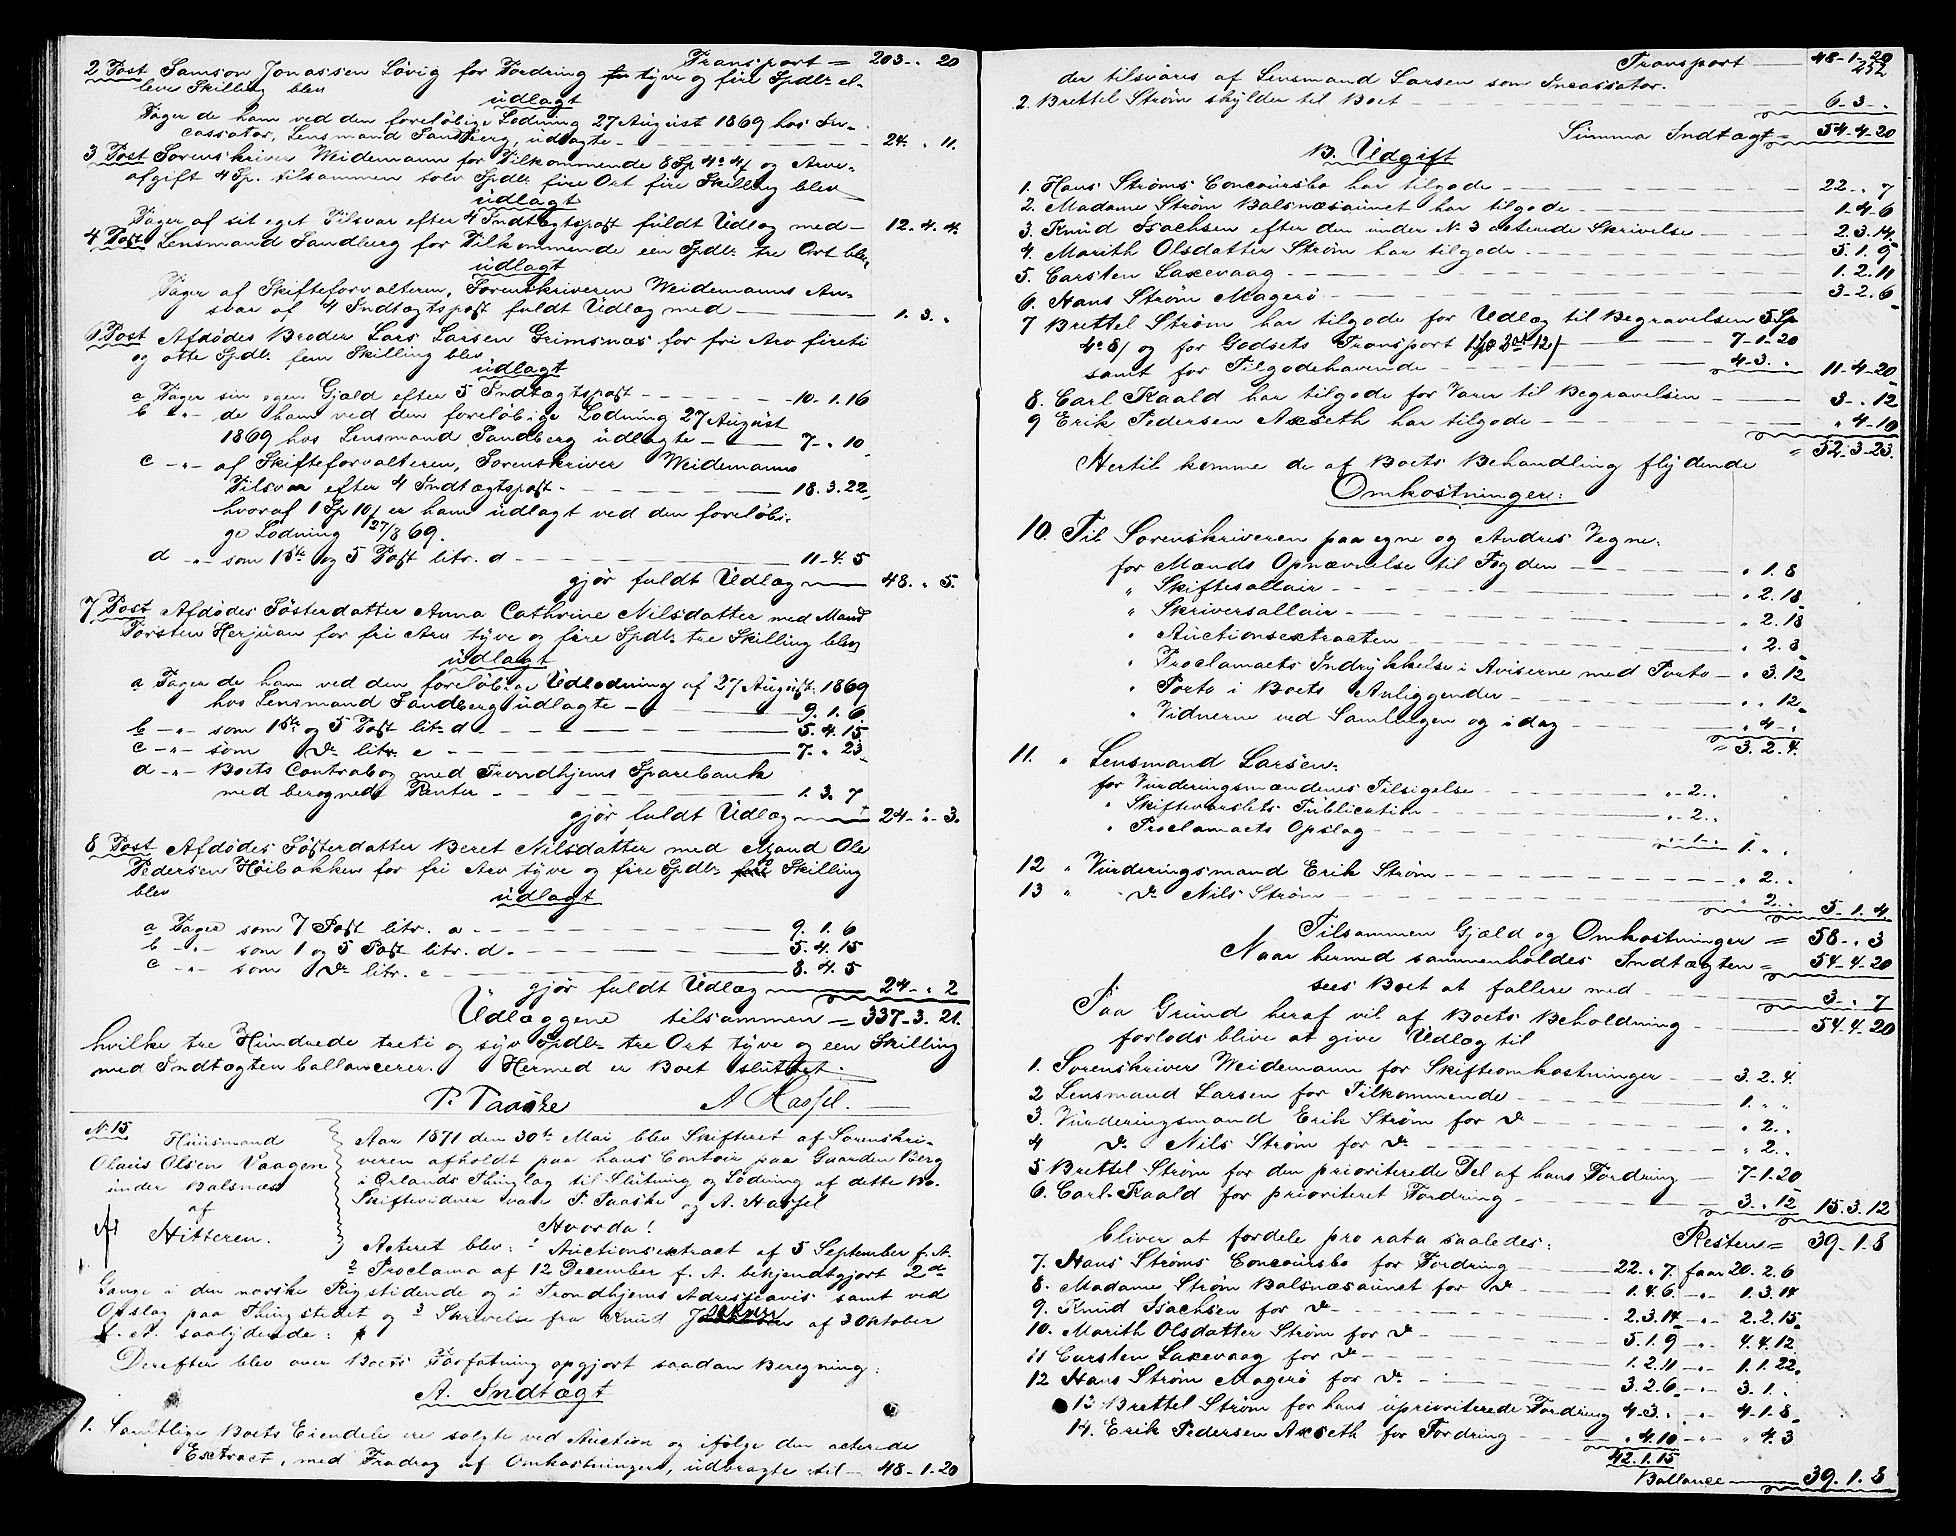 Transport = 203 - . 20
2 Post Samson Jonassen Løvig for Fordring tyve og fire Spdlr el-
leve Skilling blev
udlagt
Tager de ham ved den foreløbige Lodning 27 August 1869 hos In-
cassator, Lensmand Sandberg, udlagte - 24. . 11.
3 Post Sorenskriver Weidemann for Tilkommende 8 Sp 4 o 4 s og Arve-
afgift 4 Sp. tilsammen tolv Spdlr fire Ort fire Skilling blev
udlagt
Tager af sit eget Tilsvar efter 4 Indtægtspost fuldt Udlæg med - 12. 4. 4.
4 Post Lensmand Sandberg for Tilkommende een Spdlr tre Ort blev
udlagt
Tager af Skifteforvalteren, Sorenskriveren Weidemanns An-
svar af 4 Indtægtspost fuldt Udlæg med - 1. 3. .
6 Post Afdødes Broder Lars Larsen Grimsnæs for fri Arv fireti
og otte Spdlr fem Skilling blev
udlagt
a Tager sin egen Gjæld efter 5 Indtægtspost - 10. 1. 16
b - " - de ham ved den foreløbige Lodning 27 August
1869 hos Lensmand Sandberg udlagte - 7 - . 10
c - " - af Skifteforvalteren, Sorenskriver Weidemanns
Tilsvar efter 4 Indtægtspost - 18. 3. 22
hvoraf 1 Sp 10 s er ham udlagt ved den foreløbi-
ge Lodning 27/8 69.
d - " - som 1ste og 5 Post litr. d - 11. 4. 5
gjør fuldt Udlæg 48. . 5.
7 Post Afdødes Søsterdatter Anna Cathrine Nilsdatter med Mand
Torsten Herjuan for fri Arv tyve og fire Spdlr tre Skilling blev
udlagt
a Tager de ham ved den foreløbige Udlodning af 27 August 1869
hos Lensmand Sandberg udlagte - 9. 1. 6
b - " - som 1ste og 5 Post litr d - 5. 4. 15
c - " - som do litr. c - 7. . 23
d - " - Boets Contrabog med Trondhjems Sparebank
med beregnede Renter - 1. 3. 7
gjør fuldt Udlæg 24 - . 3.
8 Post Afdødes Søsterdatter Beret Nilsdatter med Mand Ole
Pedersen Høibakken for fri Arv tyve og fire Spdlr Skilling
blev udlagt
a Tager som 7 Post litr. a - 9. 1. 6
b - " - som 1 og 5 Post litr. d - 5. 4. 15
c - " - som do litr. c - 8. 4. 5
gjør fuldt Udlæg 24 - . 2
Udlæggene tilsammen = 337 - 3. 21.
hvilke tre Hundrede treti og syv Spdlr tre Ort tyve og een Skilling
med Indtægten ballancerer. Hermed er Boet sluttet.
P. Paaske A Hassel.
No 15
Huusmand
Olaus Olsen Vaagen
under Balsnæs
af
Hitteren.
Aar 1871 den 30te Mai blev Skifteret af Sorenskri-
veren afholdt paa hans Contoir paa Gaarden Berg
i Ørlands Thinglag til Slutning og Lodning af dette Bo.
Skiftevidner vare P. Paaske og A. Hassel
Hvorda!
Acteret blev: 1 Auctionsextract af 5 September f. A.
2 Proclama af 12 December f. A. bekjendtgjort 2de
Gange i den norske Rigstidende og i Trondhjems Adresseavis samt ved
Opslag paa Thingstedet og 3 Skrivelse fra Knud af 3 Oktober
f. A. saalydende:
Derefter blev over Boets Forfatning opgjort saadan Beregning:
A. Indtægt
1. Samtlige Boets Eiendele ere solgte ved Auction og ifølge den acterede
Extract, med Fradrag af Omkostninger, udbragte til - 48 - 1. 20
252
Transport - 48 - 1 - 20
der tilsvares af Lensmand Larsen som Incassator.
2. Brettel Strøm skylder til Boet - 6 - 3 - .
Summa Indtægt = 54 - 4 - 20
B. Udgift
1. Hans Strøms Concoursbo har tilgode - 22 - . 7
2. Madame Strøm Balsnæsaunet har tilgode - 1 - 4 - 6
3. Knud Isachsen efter den under No 3 acterede Skrivelse - 2. 3. 14
4. Marith Olsdatter Strøm har tilgode - 5. 1. 9
5. Carsten Laxevaag - 1. 2. 11
6. Hans Strøm Magerø - 3 - 2. 6
7 Brettel Strøm har tilgode for Udlæg til Begravelsen 5 Sp
4 o 8 s og for Godsets Transport 1 Sp 2 Ort 12 s - 7 - 1 - 20
samt for Tilgodehavende - 4 - 3. . 11 - 4 - 20
8. Carl Kaald har tilgode for Varer til Begravelsen - 3 - . 12
9 Erik Pedersen Axseth har tilgode - " 4 - 10
= 52. 3 - 23.
Hertil komme de af Boets Behandling flydende
Omkostninger:
10. Til Sorenskriveren paa egne og Andres Vegne:
for Mænds Opnævnelse til Fogden - " 1. 8
" Skiftesallair - " 2. 18
" Skriversallair - " 2. 18
" Auctionsextracten - " 2. 8
" Proclamaets Indrykkelse i Aviserne med Porto - " 3. 12
" Porto i Boets Anliggender - " " 12
" Vidnerne ved Samlingen og idag - " 4 - "
= 3. 2. 4.
11. " Lensmand Larsen:
for Vurderingsmændenes Tilsigelse - " 2. .
" Skiftevarslets Publication - " 2. .
" Proclamaets Opslag - " 1. .
1. . .
12 " Vurderingsmand Erik Strøm - " 2. .
13 " do Nils Strøm - " 2. . 5. 1. 4.
Tilsammen Gjæld og Omkostninger = 58 - . 3
Naar hermed sammenholdes Indtægten = 54 - 4 - 20
sees Boet at fallere med 3 - . 7
Paa Grund heraf vil af Boets Beholdning - 54. 4 - 20
forlods blive at give Udlæg til
1. Sorenskriver Weidemann for Skifteomkostninger - 3. 2. 4.
2 Lensmand Larsen for Tilkommende - 1. " "
3. Vurderingsmand Erik Strøm for do - " 2. .
4 do Nils Strøm for do - " 2. .
5 Brettel Strøm for den prioriterede Del af hans Fordring - 7 - 1 - 20
6. Carl Kaald for prioriteret Fordring - 3. . 12 15. 3. 12
Resten = 39. 1. 8
bliver at fordele pro rata saaledes:
7. Hans Strøms Concoursbo for Fordring - 22. . 7. faar 20. 2. 6
8. Madame Strøm Balsnæsaunet for do - 1. 4. 6. - " - 1. 3. 14
9. Knud Isachsen for do - 2. 3. 14 - " - 2. 2. 15
10. Marith Olsdatter Strøm for do - 5. 1. 9 - " - 4. 4. 12
11 Carsten Laxevaag for do - 1. 2. 11 - " - 1. 1. 22
12 Hans Strøm Magerø for do - 3. 2. 6 - " - 3. 1. .
13 Brettel Strøm for hans uprioriterede Fordring 4 - 3. . - " - 4 - 1 - 8
14. Erik Pedersen Axseth for Fordring - " 4. 10 - " - " 4. 3
42. 1. 15
Ballance 39. 1. 8